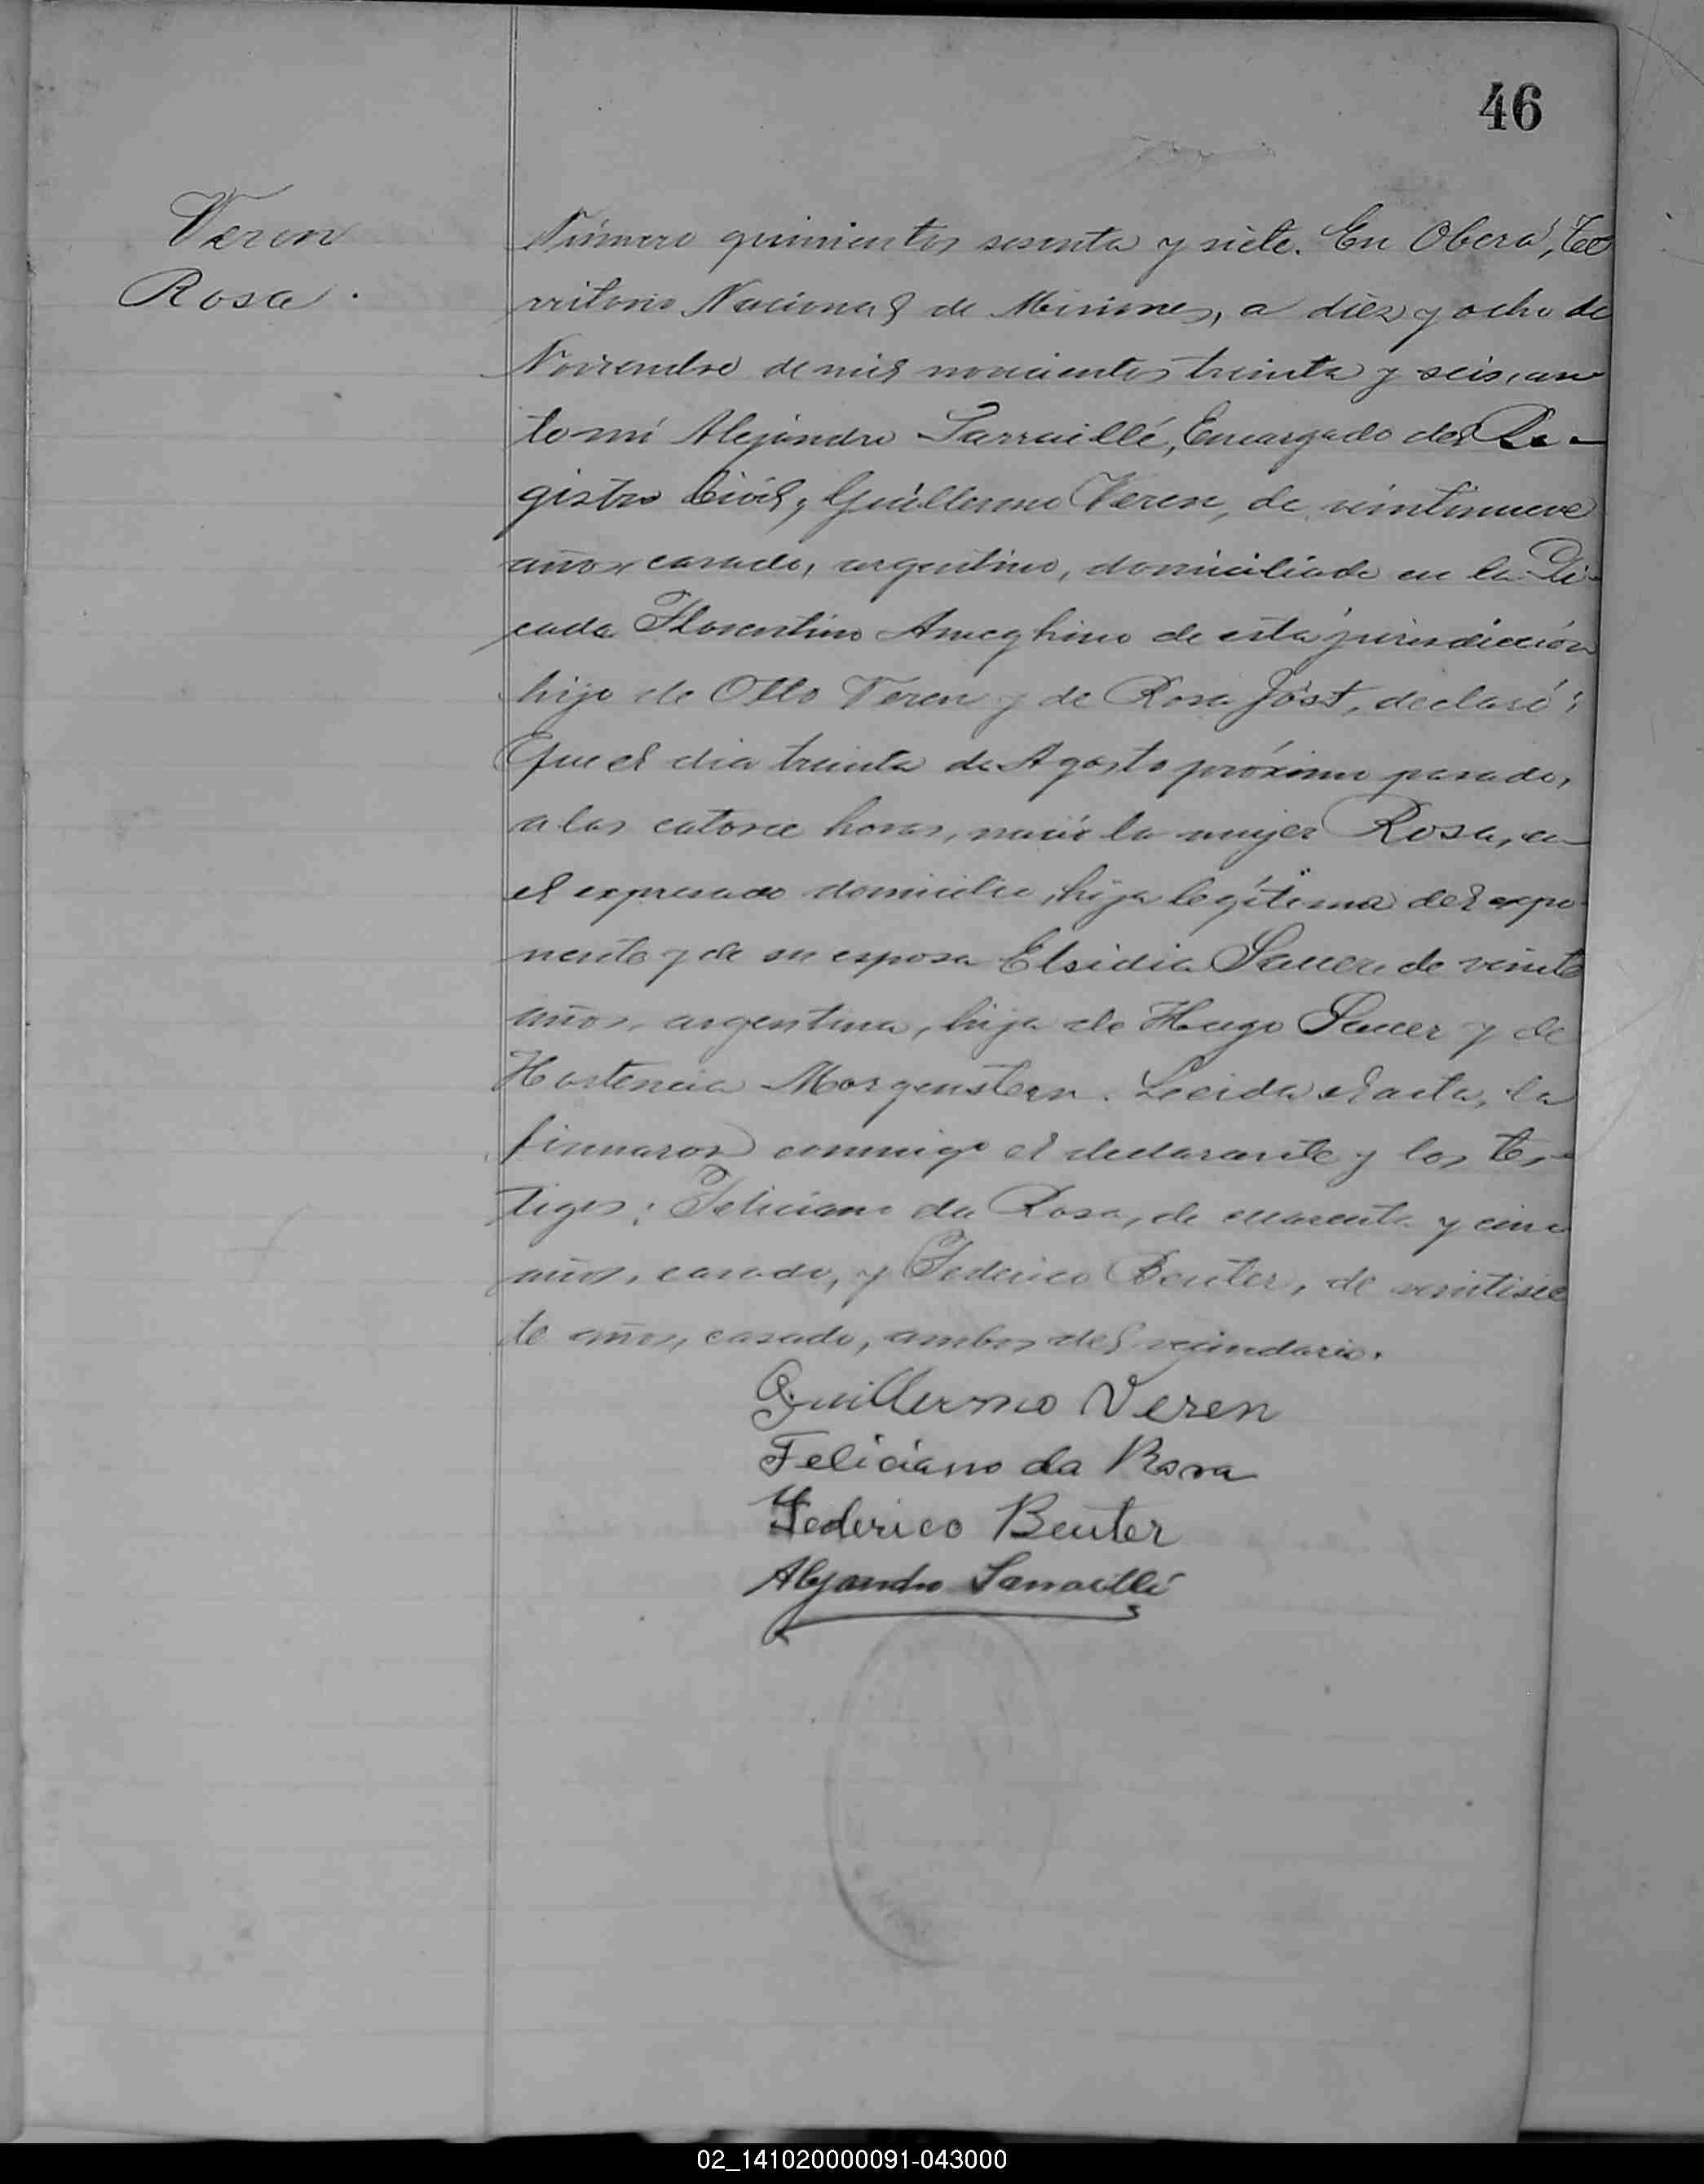 46
Veren
Rosa.
Número quinientos sesenta y siete. En Oberá, Te
rritorio Nacional de Misiones, a diez y ocho de
Noviembre de mil novecientos treinta y seis, an
te mi Alejandro Sarraillé, Encargado del Re-
gistro Civil, Guillermo Veren, de veintinueve
años, casado, argentino, domiciliado en la Pi-
cada Florentino Ameghino de esta jurisdicción
hijo de Otto Veren y de Rosa Jost, declaró:
Que el dia treinta de Agosto próximo pasado,
a las catorce horas, nació la mujer Rosa, en
el expresado domicilio, hija legítima del expo-
nente y de su esposa Elsidia Sauer, de veinte
años, argentina, hija de Hugo Sauer y de
Hortencia Morgenstern. Leida el acta, la
firmaron conmigo el declarante y los tes-
tigos: Feliciano da Rosa, de cuarenta y cinco
años, casado, y Federico Beuter, de veintisie
te años, casado, ambos del vecindario.
Guillermo Veren
Feliciano da Rosa
Federico Beuter
Alejandro Sarraillé
02_141020000091-043000